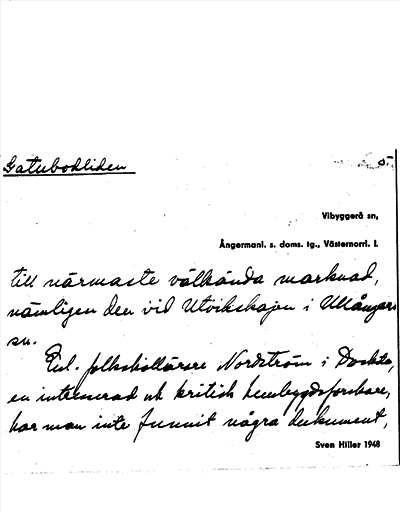 Gatubodliden
5-
Vibyggerå sn,
Ångermanl. s. doms. tg., Västernorrl. l.
till närmaste välkända marknad,
nämligen den vid Utvikshajen i Ullångers
sn.
Enl. folkskollärare Nordström i Docksta,
en intresserad och kritisk hembygdsforskare,
har man inte funnit några dokument,
Sven Hiller 1948